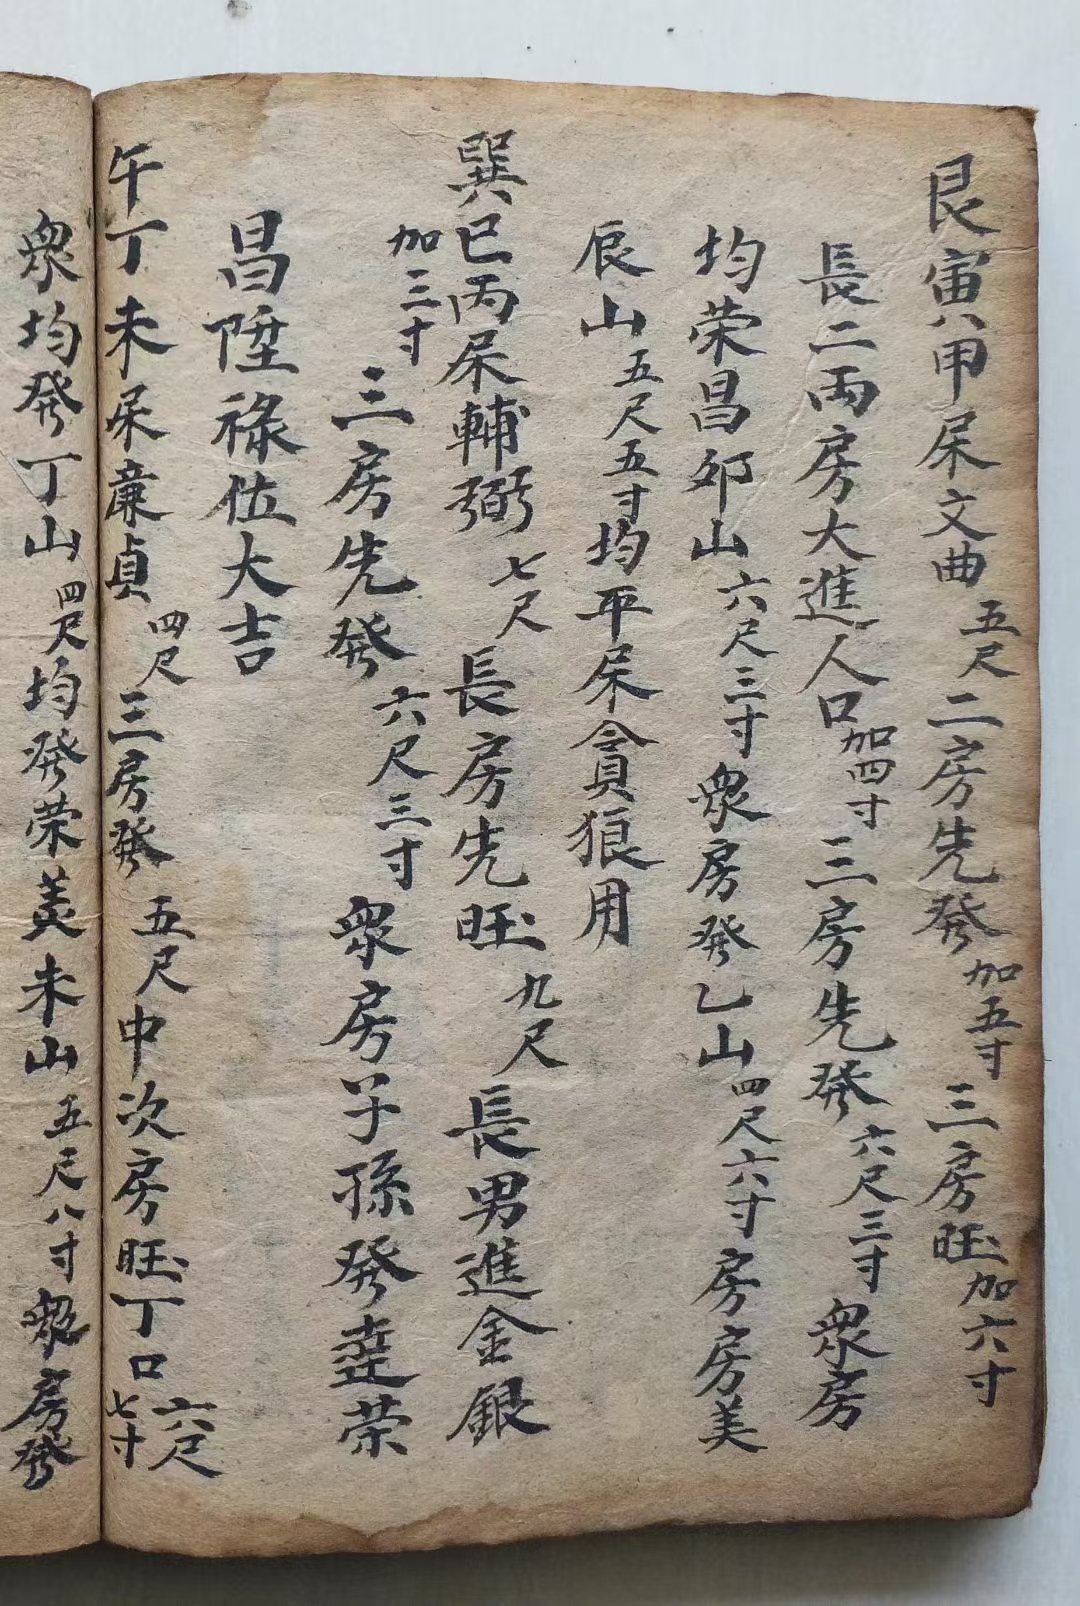 艮寅甲屎文曲五尺二房先發加五寸三房旺加六寸
長二両房大進人口加四寸三房先發六尺三寸衆房
均荣昌夘山六尺三寸衆房發乙山四尺六寸房房美
辰山五尺五寸均平屎貪狼用
巽巳丙屎輔弼七尺長房先旺九尺長男進金銀
加三寸三房先發六尺三寸衆房子孫發達荣
昌陞祿位大吉
午丁未屎廉貞四尺三房發五尺中次房旺丁口六尺七寸
衆均發丁山四尺均發荣美未山五尺八寸衆房發